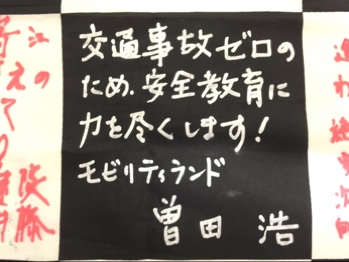 交通事故ゼロの
ため、安全教育に
力を尽くします!
モビリティランド
曽田 浩